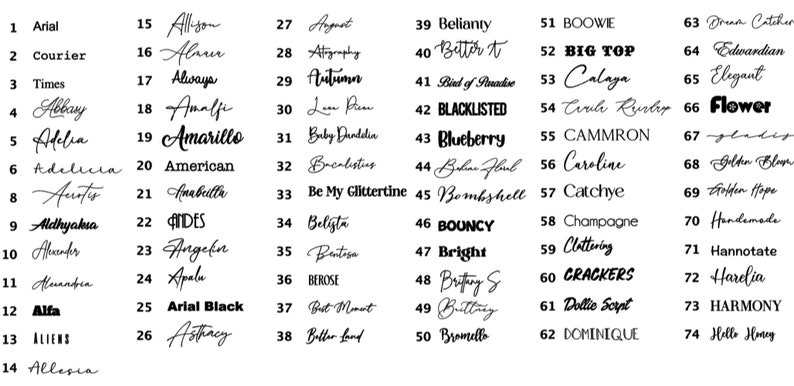 1 Arial
2 Courier
3 Times
4 Abbasy
5 Adelia
6 Adelicia
8 Aerotis
9 Aldhyaksa
10 Alexander
11 Alexandria
12 Alfa
13 ALIENS
14 Allesia
15 Allison
16
17 Always
18 Amalfi
19 Amarillo
20 American
21 Anabella
22 ANDES
23 Angelin
24 Apalu
25 Arial Black
26 Asthacy
27 August
28 Atography
29 Autumn
30
31 Baby Dandelia
32 Bacalisties
33 Be My Glittertine
34 Belista
35 Bentosa
36 BEROSE
37 Best Moment
38 Better Land
39 Belianty
40 Better
41 Bird of Paradise
42 BLACKLISTED
43 Blueberry
44 Floral
45 Bombshell
46 BOUNCY
47 Bright
48 Brittany S
49 Brittney
50 Bromello
51 BOOWIE
52 BIG TOP
53 Calaya
54 Raindrop
55 CAMMRON
56 Caroline
57 Catchye
58 Champagne
59 Clattering
60 CRACKERS
61 Dollie Script
62 DOMINIQUE
63 Dream Catcher
64 Edwardian
65 Elegant
66 Flower
67 gladis
68 Golden Bloom
69 Golden Hope
70 Handemade
71 Hannotate
72 Harelia
73 HARMONY
74 Hello Honey